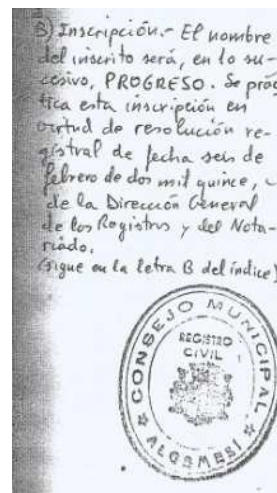 3) Inscripción.- El nombre
del inscrito será, en lo su-
cesivo, PROGRESO. Se prác
tica esta inscripción en
virtud de resolución re-
gistral de fecha seis de
febrero de dos mil quince,
de la Dirección General
de los Registros y del Nota-
riado.
(sigue en la letra B del índice)
CONSEJO MUNICIPAL
REGISTRO
CIVIL
ALGEMESÍ